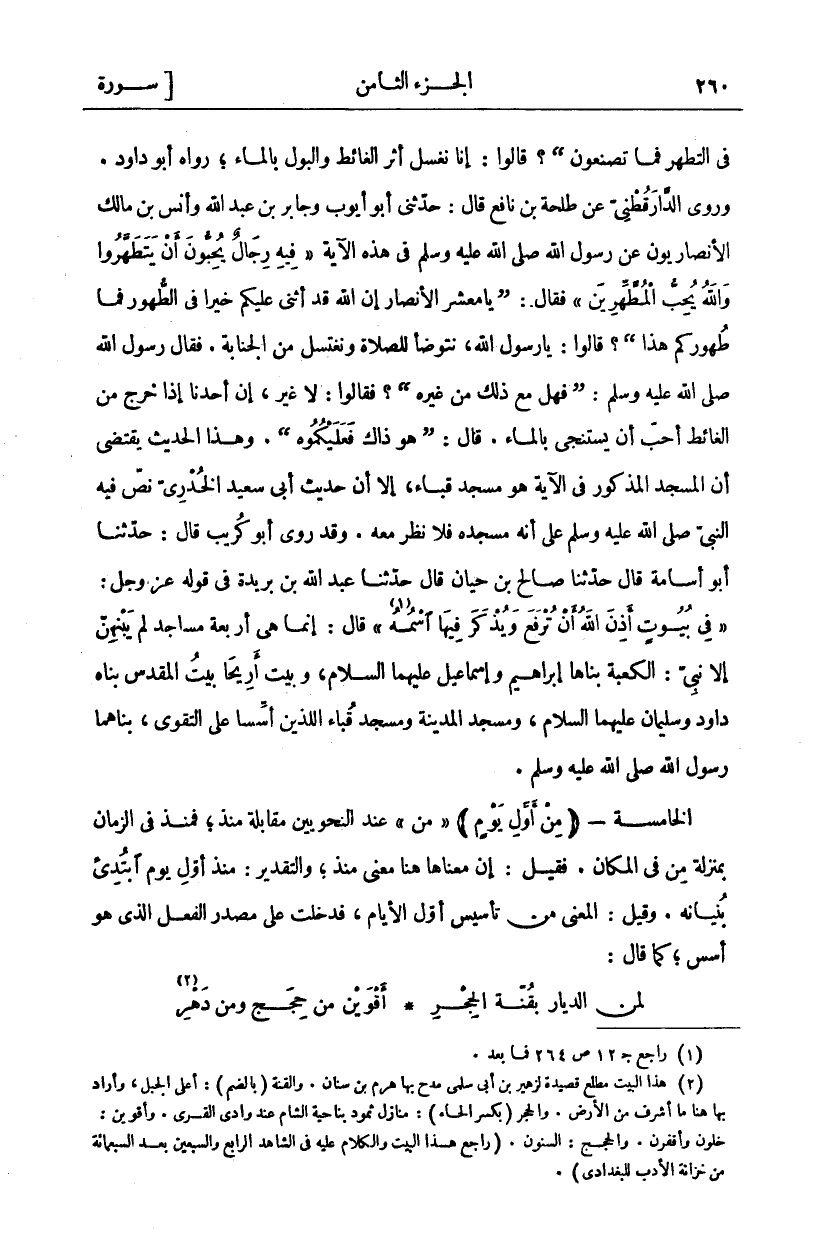 ٢٦٠ الجزء الثامن [ سورة
فى التطهر فما تصنعون “ ؟ قالوا : إنا نغسل أثر الغائط والبول بالماء ؛ رواه أبو داود .
وروى الدَّارَقُطْنِىّ عن طلحة بن نافع قال : حدّثنى أبو أيوب وجابر بن عبد الله وأنس بن مالك
الأنصاريون عن رسول الله صلى الله عليه وسلم فى هذه الآية « فِيهِ رِجَالٌ يُحِبُّونَ أَنْ يَتَطَهَّرُوا
وَاللهُ يُحِبُّ الْمُطَّهِّرِينَ » فقال : ” يامعشر الأنصار إن الله قد أثنى عليكم خيرا فى الطُّهور فما
طُهوركم هذا “ ؟ قالوا : يارسول الله، نتوضأ للصلاة ونغتسل من الجنابة . فقال رسول الله
صلى الله عليه وسلم : ” فهل مع ذلك من غيره “ ؟ فقالوا : لا غير ، إن أحدنا إذا خرج من
الغائط أحبّ أن يستنجى بالماء . قال : ” هو ذاك فَعَلَيْكُمُوه “ . وهذا الحديث يقتضى
أن المسجد المذكور فى الآية هو مسجد قباء، إلا أن حديث أبى سعيد الخُدْرىّ نصّ فيه
النبىّ صلى الله عليه وسلم على أنه مسجده فلا نظر معه . وقد روى أبو كُريب قال : حدّثنا
أبو أسامة قال حدّثنا صالح بن حيان قال حدّثنا عبد الله بن بريدة فى قوله عز وجل :
« فِى بُيُوتٍ أَذِنَ اللهُ أَنْ تُرْفَعَ وَيُذْكَرَ فِيهَا ٱسْمُهُ(١) » قال : إنما هى أربعة مساجد لم يَبْنِهِنّ
إلا نبىّ : الكعبة بناها إبراهيم وإسماعيل عليهما السلام، وبيت أَرِيحَا بيتُ المقدس بناه
داود وسليمان عليهما السلام ، ومسجد المدينة ومسجد قُباء اللذين أُسِّسا على التقوى ، بناهما
رسول الله صلى الله عليه وسلم .
الخامسة — ﴿ مِنْ أَوَّلِ يَوْمٍ ﴾ « من » عند النحويين مقابلة منذ ؛ فمنذ فى الزمان
بمنزلة مِن فى المكان . فقيل : إن معناها هنا معنى منذ ؛ والتقدير : منذ أوّلِ يوم ٱبتُدِئ
بُنيانه . وقيل : المعنى من تأسيس أوّل الأيام ، فدخلت على مصدر الفعل الذى هو
أسس ؛ كما قال :
لمن الديار بقُنّة الحِجْرِ * أَقْوَيْن من حِجَج ومن دَهْرِ(٢)
(١) راجع جـ ١٢ ص ٢٦٤ فما بعد .
(٢) هذا البيت مطلع قصيدة لزهير بن أبى سلمى مدح بها هرم بن سنان . والقنة (بالضم) : أعلى الجبل، وأراد
بها هنا ما أشرف من الأرض . والحجر (بكسر الحاء) : منازل ثمود بناحية الشام عند وادى القرى . وأقوين :
خلون وأقفرن . والحجج : السنون . (راجع هذا البيت والكلام عليه فى الشاهد الرابع والسبعين بعد السبعمائة
من خزانة الأدب للبغدادى) .